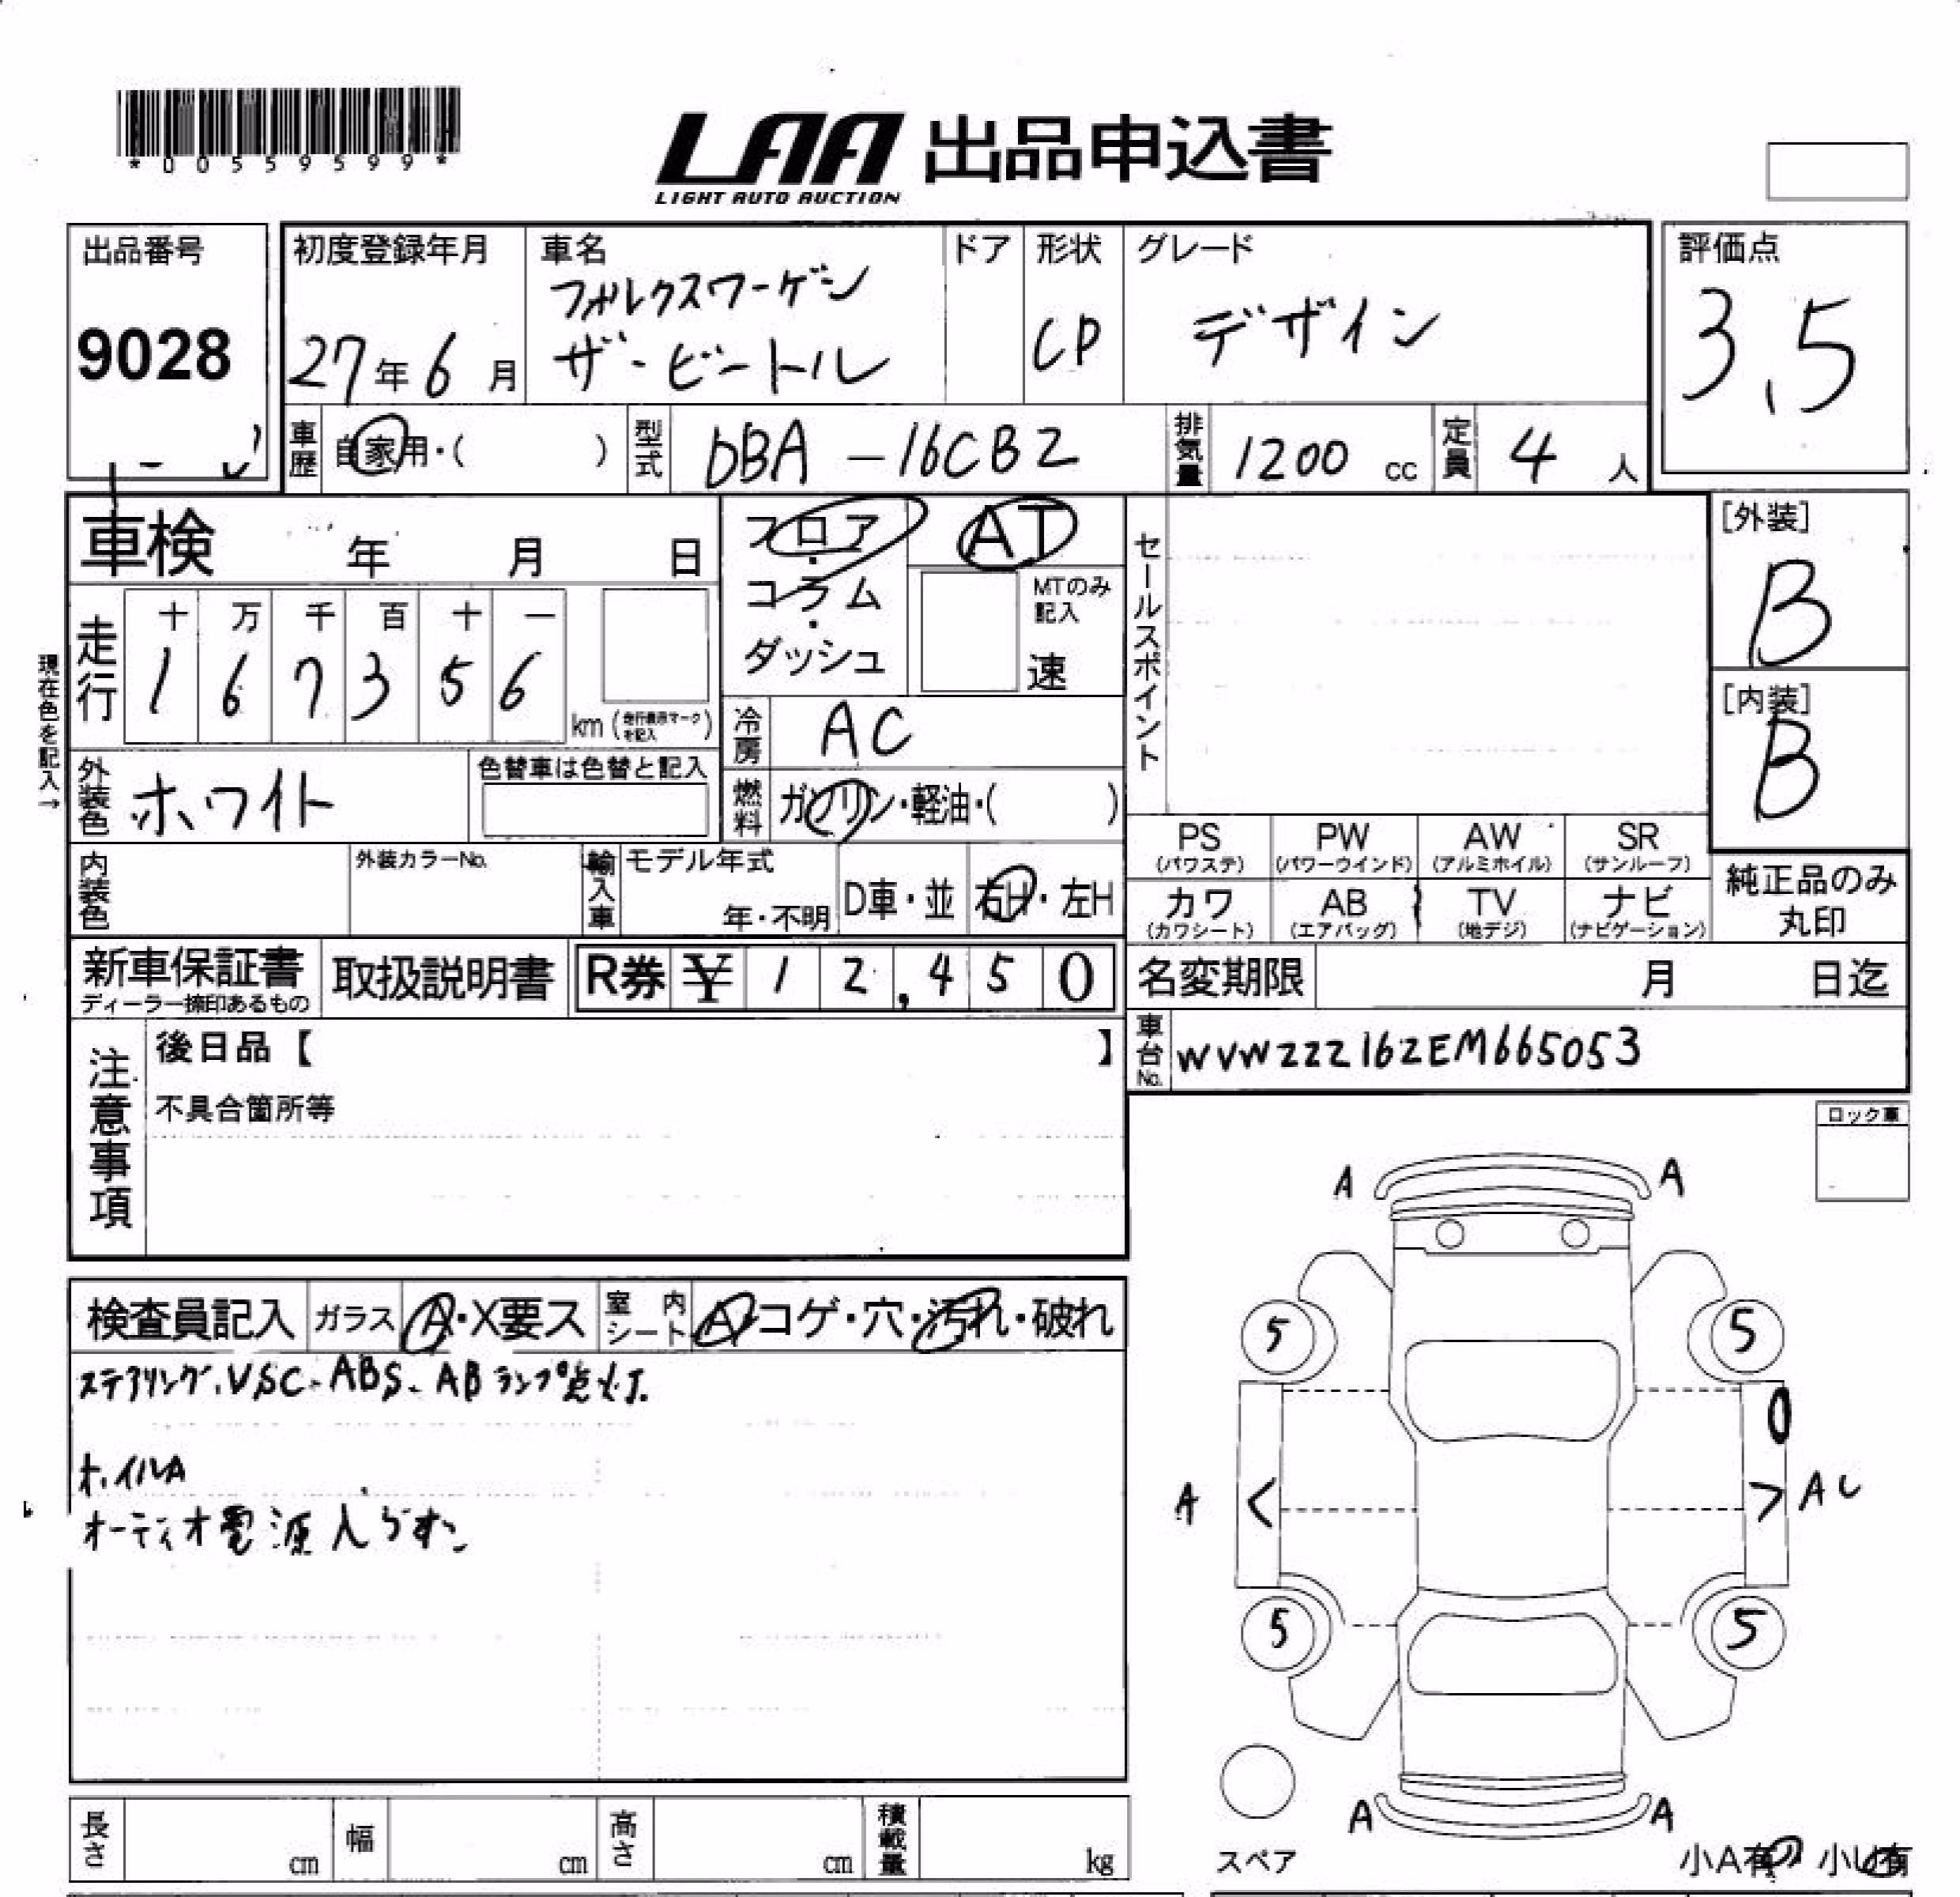 *00559599*
LAA 出品申込書
LIGHT AUTO AUCTION
出品番号
9028
初度登録年月
27年6月
車名
フォルクスワーゲン
ザ・ビートル
ドア
形状
CP
グレード
デザイン
評価点
3.5
車歴 自家用・( )
型式 DBA-16CBZ
排気量 1200 cc
定員 4 人
車検 年 月 日
フロア・コラム・ダッシュ
AT
MTのみ記入
速
セールスポイント
[外装]
B
[内装]
B
現在色を記入→
走行
十 万 千 百 十 一
1 6 7 3 5 6
km (走行表示マークを記入)
冷房 AC
外装色 ホワイト
色替車は色替と記入
燃料 ガソリン・軽油・( )
内装色
外装カラーNo.
輸入車
モデル年式
年・不明
D車・並
右H・左H
PS (パワステ)
PW (パワーウインド)
AW (アルミホイル)
SR (サンルーフ)
カワ (カワシート)
AB (エアバッグ)
TV (地デジ)
ナビ (ナビゲーション)
純正品のみ
丸印
新車保証書
ディーラー捺印あるもの
取扱説明書
R券 ¥ 12,450
名変期限 月 日迄
車台No. WVWZZZ16ZEM665053
注意事項
後日品【 】
不具合箇所等
ロック車
検査員記入
ガラス A・X要ス
室内シート A・コゲ・穴・汚れ・破れ
ステアリング、VSC、ABS、ABランプ点灯.
ホイルA
オーディオ電源入らず
A A
5 5
A < > AU
5 5
A A
スペア
小A有・小U有
長さ cm
幅 cm
高さ cm
積載量 kg